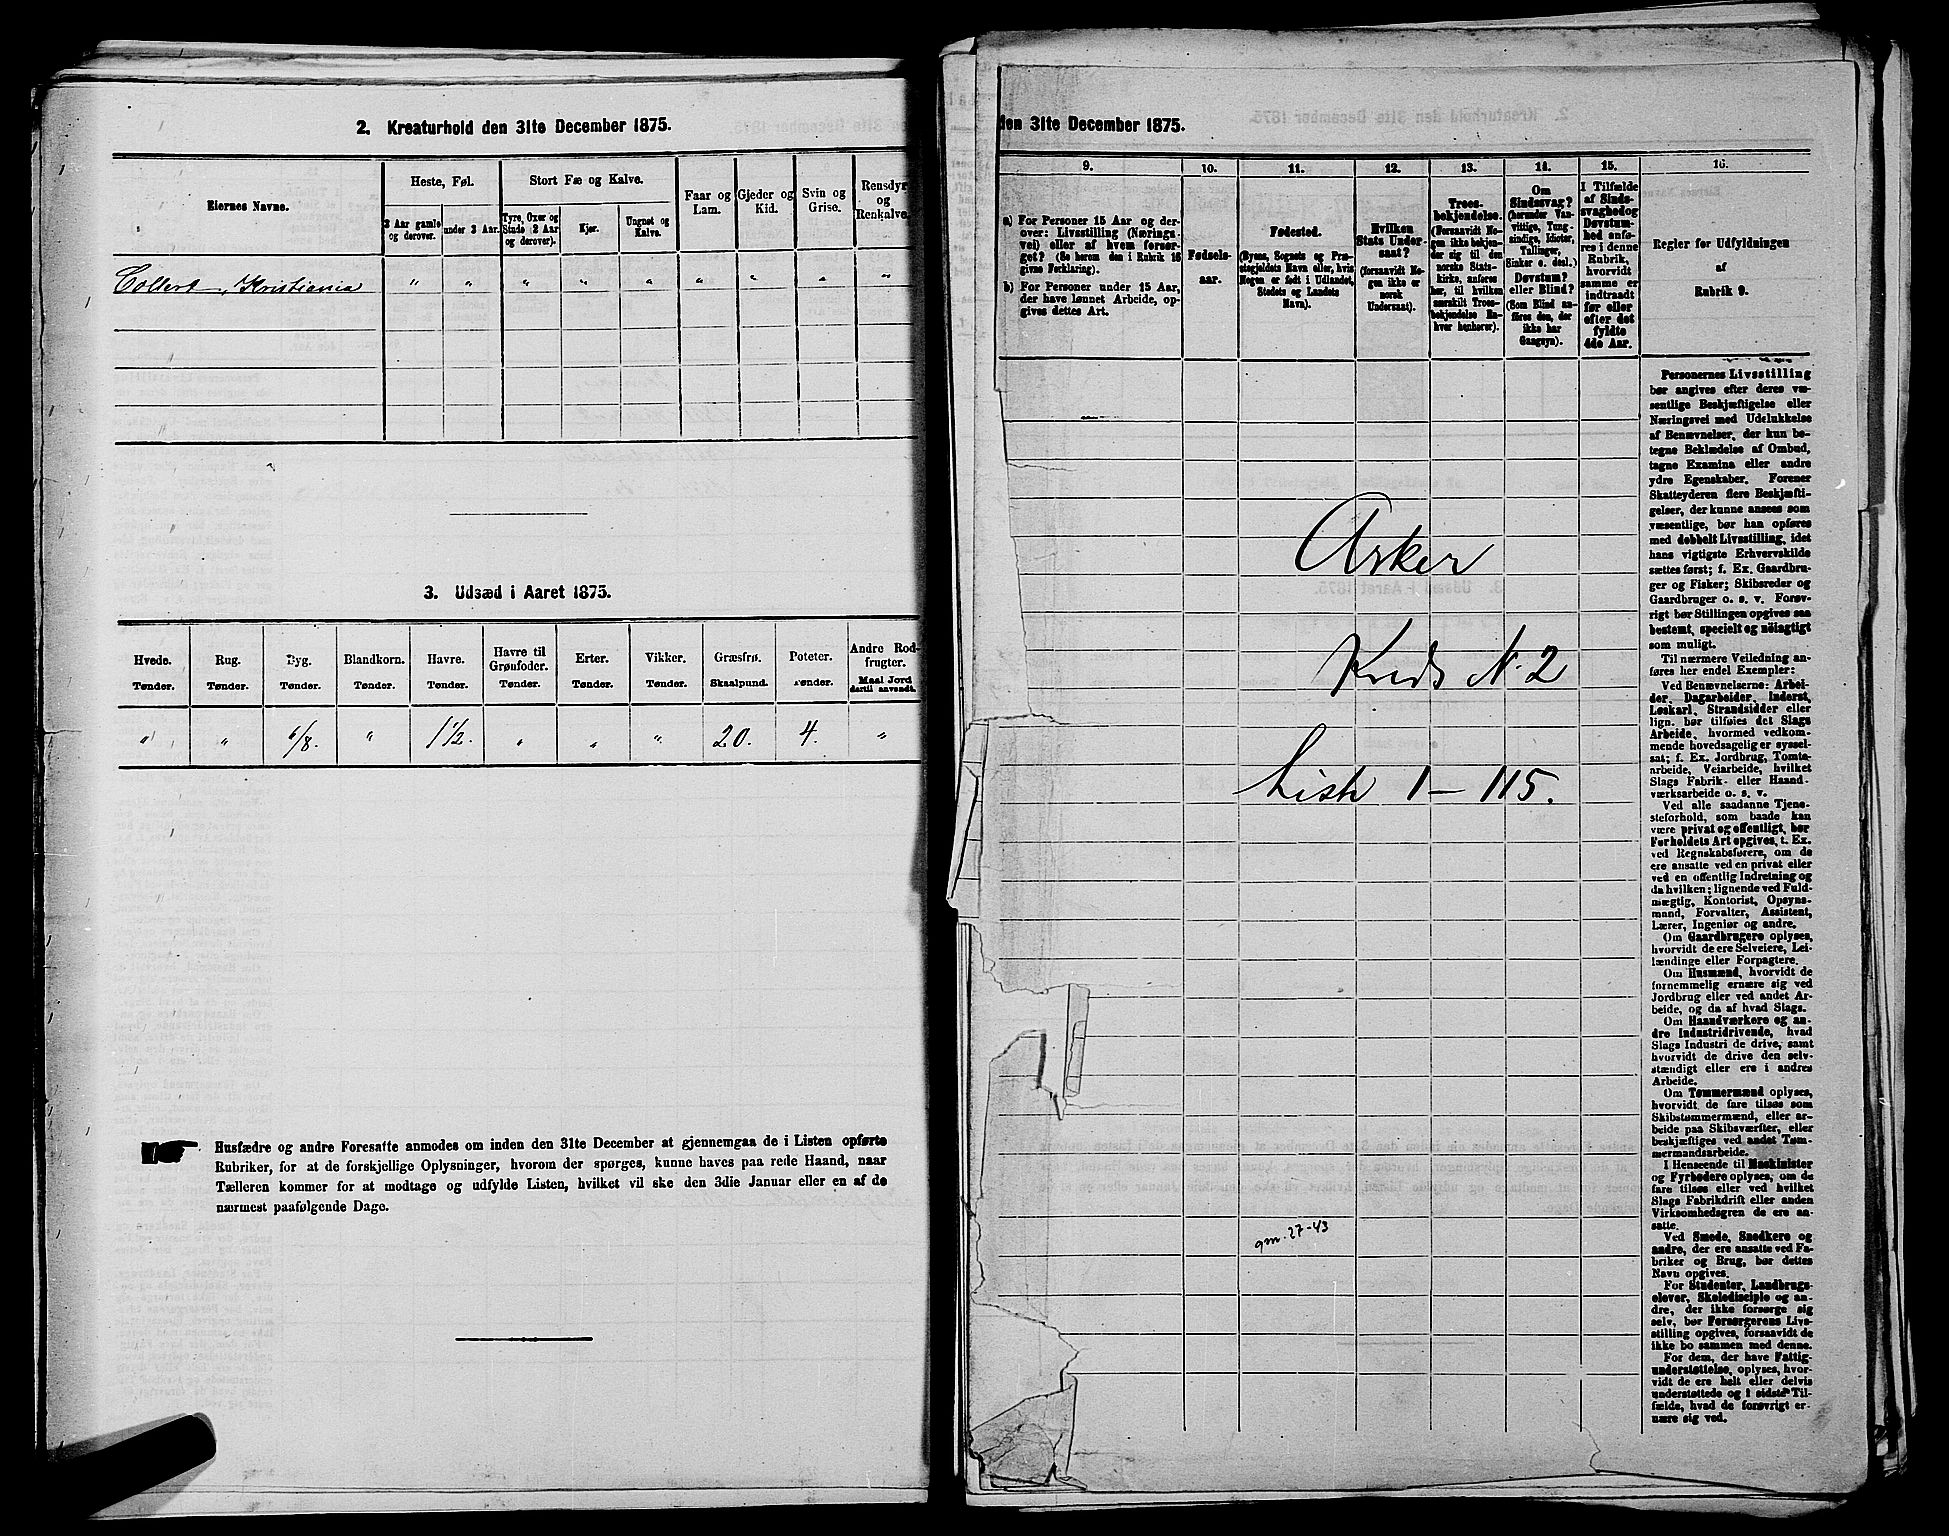 2. Kreaturhold den 31te December 1875.
Eiernes Navne.
Heste, Føl.
Stort Fæ og Kalve.
Faar og Lam.
Gjeder og Kid.
Svin og Grise.
Rensdyr og Renkalve.
3 Aar gamle og derover.
under 3 Aar.
Tyre, Oxer og Stude (2 Aar og derover).
Kjør.
Ungnet og Kalve.
Collett, Kristiania " " " " " " " " "
3. Udsæd i Aaret 1875.
Hvede. Rug. Byg. Blandkorn. Havre. Havre til Grønfoder. Erter. Vikker. Græsfrø. Poteter. Andre Rodfrugter.
Tønder. Tønder. Tønder. Tønder. Tønder. Tønder. Tønder. Tønder. Skaalpund. Tønder. Maal Jord dertil anvendt.
" " 6/8. " 1 1/2. " " " 20. 4. "
Husfædre og andre Foresatte anmodes om inden den 31te December at gjennemgaa de i Listen opførte
Rubriker, for at de forskjellige Oplysninger, hvorom der spørges, kunne haves paa rede Haand, naar
Tælleren kommer for at modtage og udfylde Listen, hvilket vil ske den 3die Januar eller en af de
nærmest paafølgende Dage.
den 31te December 1875.
9. 10. 11. 12. 13. 14. 15. 16.
a) For Personer 15 Aar og derover:
Livsstilling (Næringsvei) eller af hvem forsørget?
(Se herom den i Rubrik 16 givne Forklaring).
b) For Personer under 15 Aar,
der have lønnet Arbeide, opgives dettes Art.
Fødselsaar.
Fødested.
(Byens, Sognets og Præstegjeldets Navn eller, hvis Nogen er født i Udlandet, Stedets og Landets Navn).
Hvilken Stats Undersaat?
(forsaavidt Nogen ikke er norsk Undersaat).
Troesbekjendelse.
(Forsaavidt Nogen ikke bekjender sig til den norske Statskirke, anføres her, til hvilken særskilt Troesbekjendelse Enhver henhører).
Om Sindssvag?
(herunder Vanvittige, Tungsindige, Idioter, Tullinger, Sinker o. desl.)
Døvstum? eller Blind?
(Som Blind anføres den, der ikke har Gangsyn).
I Tilfælde af Sindssvaghed og Døvstumhed anføres i denne Rubrik, hvorvidt samme er indtraadt før eller efter det fyldte 4de Aar.
Regler for Udfyldningen
af
Rubrik 9.
Personernes Livsstilling
bør angives efter deres væsentlige
Beskjæftigelse eller
Næringsvei med Udelukkelse
af Benævnelser, der kun betegne
Beklædelse af Ombud,
tagne Examina eller andre
ydre Egenskaber. Forener
Skatteyderen flere Beskjæftigelser,
der kunne ansees som
væsentlige, bør han opføres
med dobbelt Livsstilling, idet
hans vigtigste Erhvervskilde
sættes først; f. Ex. Gaardbruger
og Fisker; Skibsreder og
Gaardbruger o. s. v. Forøvrigt
bør Stillingen opgives saa
bestemt, specielt og nöiagtigt
som muligt.
Til nærmere Veiledning anføres
her endel Exempler:
Ved Benævnelserne: Arbeider,
Dagarbeider, Inderst,
Løskarl, Strandsidder eller
lign. bør tilføies det Slags
Arbeide, hvormed vedkommende
hovedsagelig er sysselsat;
f. Ex. Jordbrug, Tomtearbeide,
Veiarbeide, hvilket
Slags Fabrik- eller Haandværksarbeide
o. s. v.
Ved alle saadanne Tjenesteforhold,
som baade kan
være privat og offentligt, bør
Forholdets Art opgives, t. Ex.
ved Regnskabsførere, om de
ere ansatte ved en privat eller
ved en offentlig Indretning og
da hvilken; lignende ved Fuldmægtig,
Kontorist, Opsynsmand,
Forvalter, Assistent,
Lærer, Ingeniør og andre.
Om Gaardbrugere oplyses,
hvorvidt de ere Selveiere, Leilændinge
eller Forpagtere.
Om Husmænd, hvorvidt de
fornemmelig ernære sig ved
Jordbrug eller ved andet Arbeide,
og da af hvad Slags.
Om Haandværkere og andre
Industridrivende, hvad
Slags Industri de drive, samt
hvorvidt de drive den selvstændigt
eller ere i andres
Arbeide.
Om Tømmermænd oplyses,
hvorvidt de fare tilsøs som
Skibstømmermænd, eller arbeide
paa Skibsværfter, eller
beskjæftiges ved andet Tømmermandsarbeide.
I Henseende til Maskinister
og Fyrbødere oplyses, om de
fare tilsøs eller ved hvilket
Slags Fabrikdrift eller anden
Virksomhedsgren de ere ansatte.
Ved Smede, Snedkere og
andre, der ere ansatte ved Fabriker
og Brug, bør dettes
Navn opgives.
For Studenter, Landbrugselever,
Skoledisciple og andre,
der ikke forsørge sig
selv, bør Forsørgerens Livsstilling
opgives, forsaavidt de
ikke bo sammen med denne.
For dem, der have Fattigunderstøttelse,
oplyses, hvorvidt
de ere helt eller delvis
understøttede og i sidste Tilfælde,
hvad de forøvrigt ernære
sig ved.
Asker
Kreds N. 2
Liste 1 - 115.
gm. 27-43